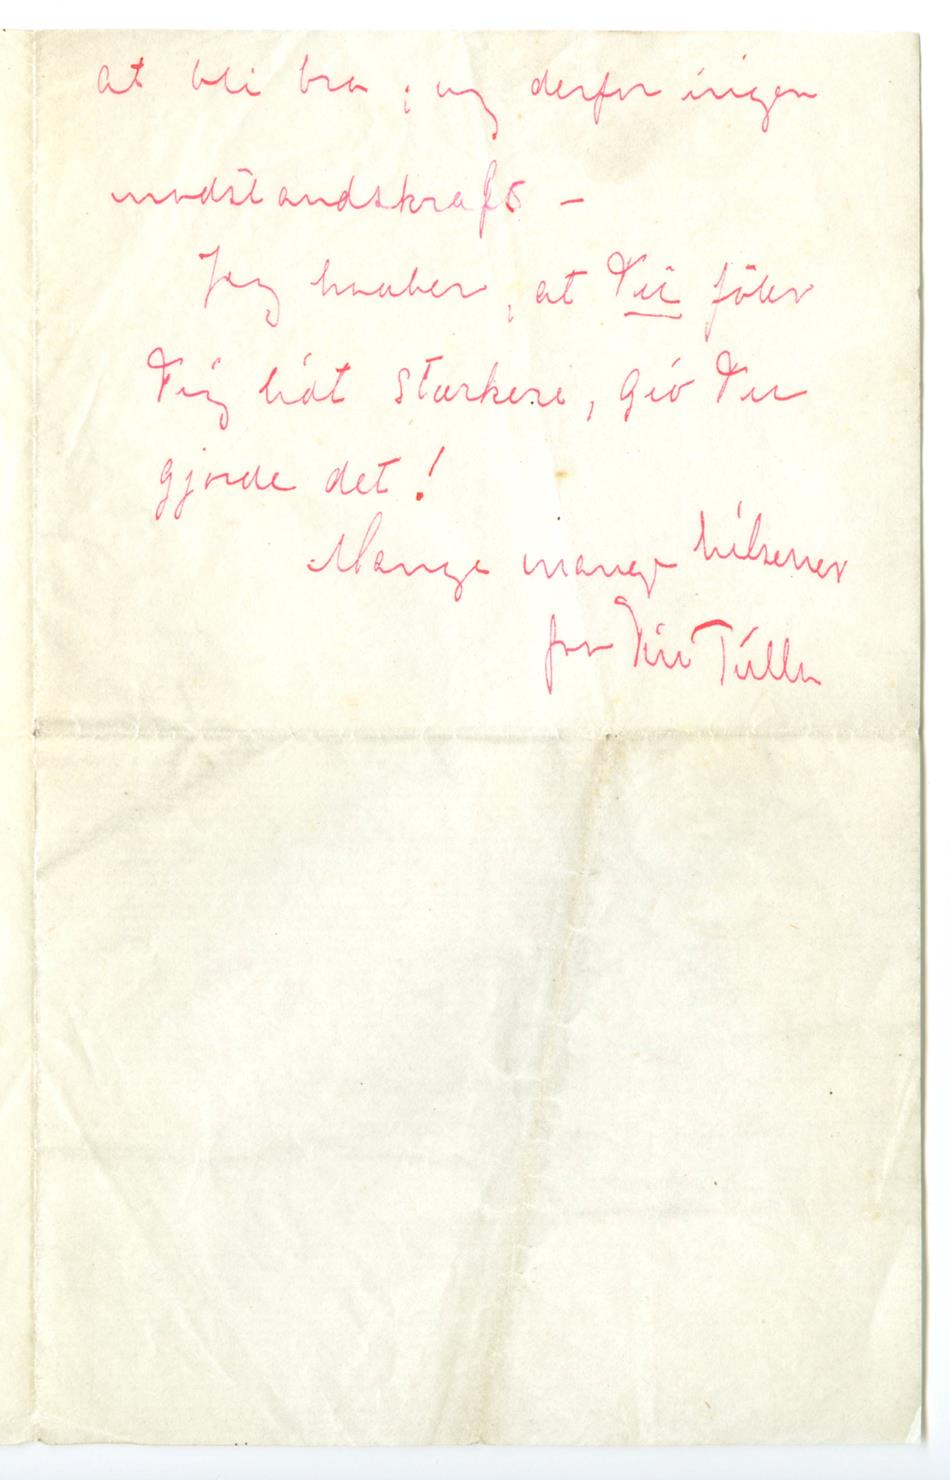 at bli bra; og derfor ingen
modstandskraft –
Jeg haaber, at Du føler
Dig lidt stærkere, Gid Du
gjorde det!
Mange mange hilsener
fra Din Tulla